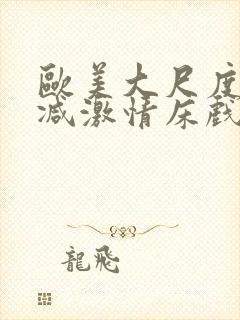 歐美大尺度
减激情床戲
龍飛